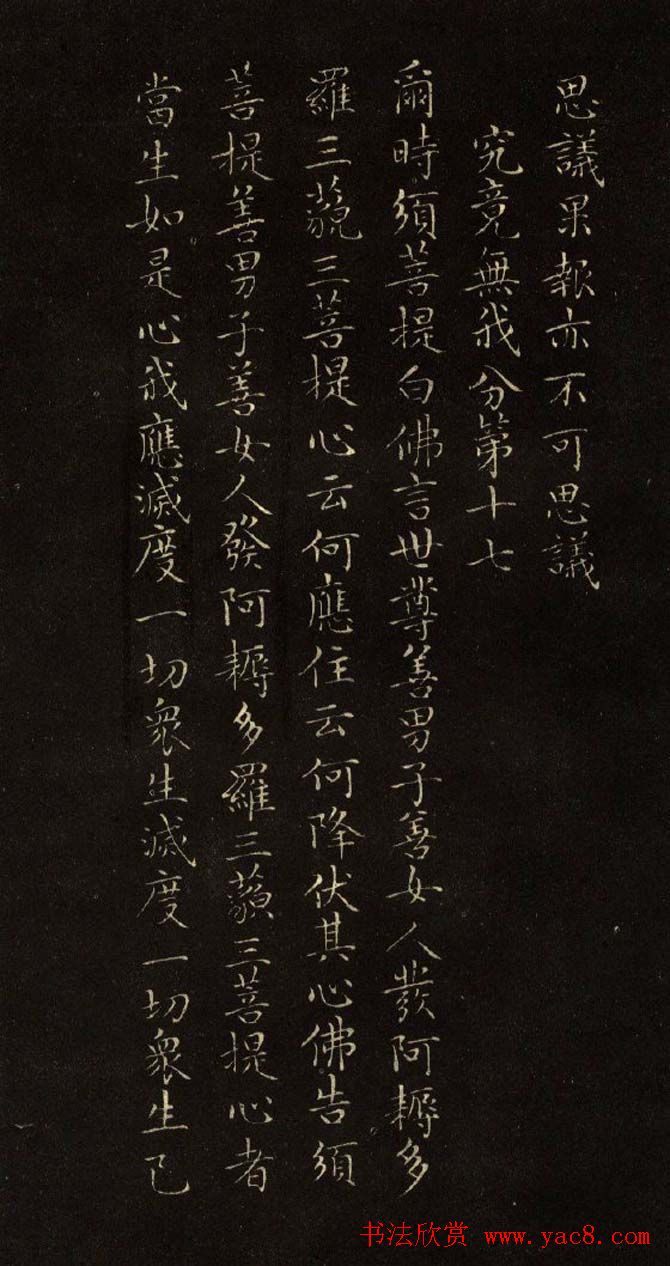 思議果報亦不可思議
究竟無我分第十七
爾時須菩提白佛言世尊善男子善女人發阿耨多
羅三藐三菩提心云何應住云何降伏其心佛告須
菩提善男子善女人發阿耨多羅三藐三菩提心者
當生如是心我應滅度一切眾生滅度一切眾生已
书法欣赏 www.yac8.com